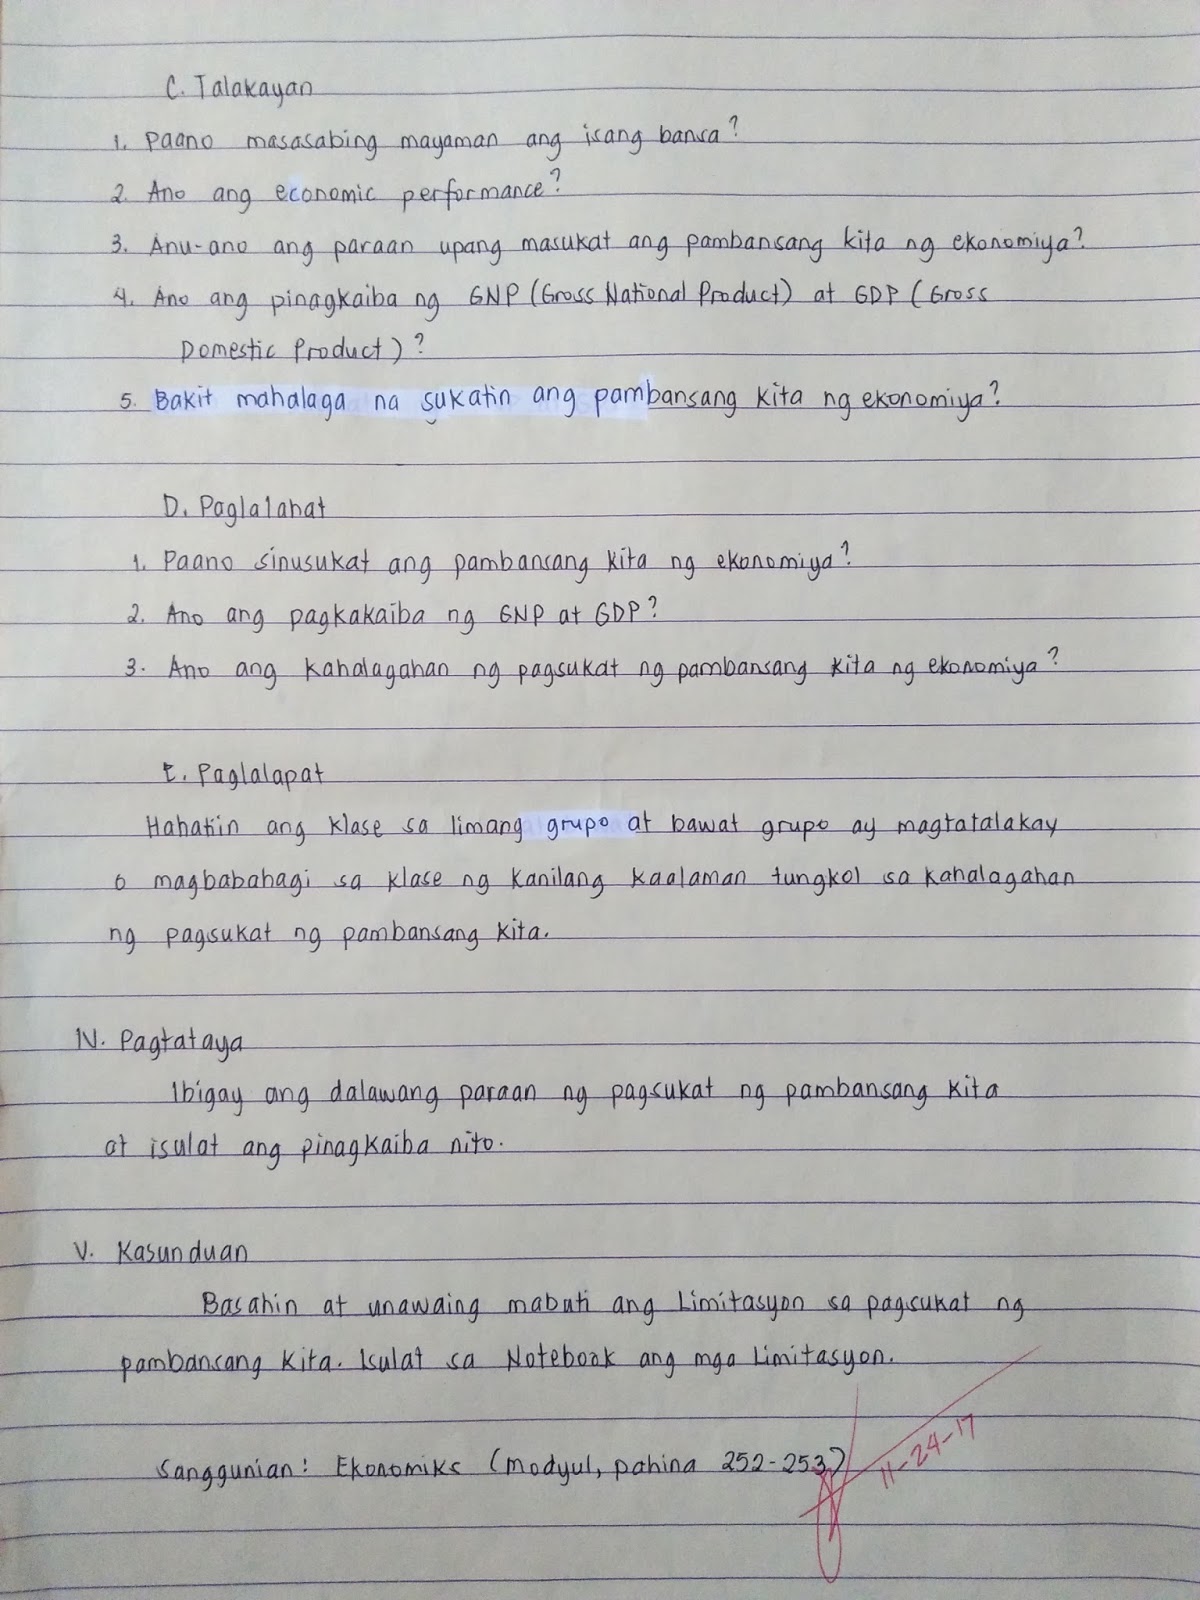 C. Talakayan
1. Paano masasabing mayaman ang isang bansa?
2. Ano ang economic performance?
3. Anu-ano ang paraan upang masukat ang pambansang kita ng ekonomiya?
4. Ano ang pinagkaiba ng GNP (Gross National Product) at GDP (Gross
Domestic Product)?
5. Bakit mahalaga na sukatin ang pambansang kita ng ekonomiya?
D. Paglalahat
1. Paano sinusukat ang pambansang kita ng ekonomiya?
2. Ano ang pagkakaiba ng GNP at GDP?
3. Ano ang kahalagahan ng pagsukat ng pambansang kita ng ekonomiya?
E. Paglalapat
Hahatiin ang klase sa limang grupo at bawat grupo ay magtatalakay
o magbabahagi sa klase ng kanilang kaalaman tungkol sa kahalagahan
ng pagsukat ng pambansang kita.
IV. Pagtataya
Ibigay ang dalawang paraan ng pagsukat ng pambansang kita
at isulat ang pinagkaiba nito.
V. Kasunduan
Basahin at unawaing mabuti ang Limitasyon sa pagsukat ng
pambansang kita. Isulat sa Notebook ang mga limitasyon.
Sanggunian: Ekonomiks (modyul, pahina 252-253)
11-24-17